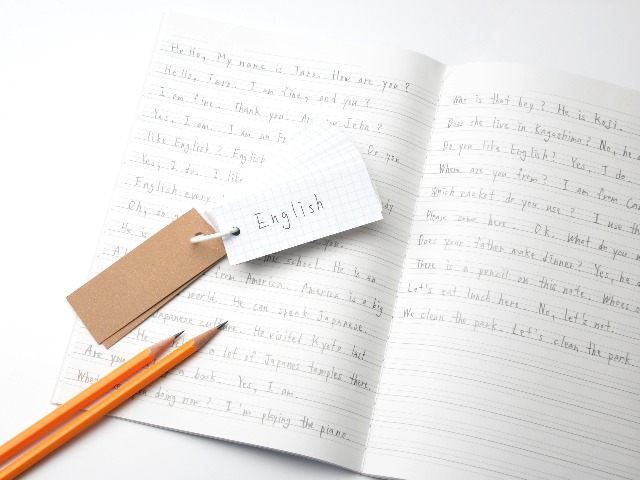 Hello, My name is Taro. How are you?
Hello, Taro. I am fine, and you?
I am fine. Thank you. John?
Yes, I am. I am an Do you
like English? English
Yes, I do. I like
English every
Oh,
is you.
this school. He is an
from America. America is a big
world. He can speak Japanese.
Japanese culture. He visited Kyoto last
He a lot of Japanes temples there.
Are you book. Yes, I am.
What doing now? I'm playing the piano.
English
Who is that boy? He is Koji.
Does she live in Kagoshima? No, he
Do you like English? Yes, I do.
Where are you from? I am from
Which racket do you use? I use
Please come here. OK. What do you
Does your father make dinner? Yes, he
There is a pencil on this note.
Let's eat lunch here. No, let's not.
We clean the park. Let's clean the park.